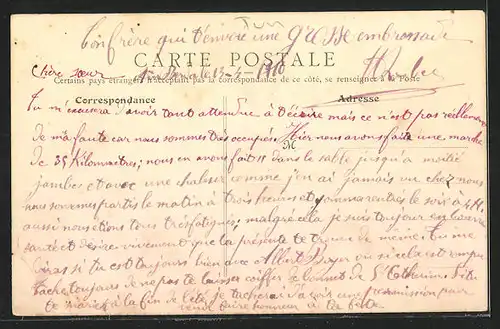 Ton frère qui t'envoie une grosse embrassade
CARTE POSTALE
Certains pays étrangers n'acceptant pas la correspondance de ce côté, se renseigner à la Poste
Chère sœur le 13-4-1910
Correspondance Adresse
Tu m'excusera d'avoir tant attendue à t'écrire mais ce n'est pas réellement
de ma faute car nous sommes très occupés. Hier nous avons faite une marche
de 35 Kilomètres; nous en avons fait 11 dans le sable jusqu'à moitié
jambes et avec une chaleur comme j'en ai jamais vu chez nous
nous sommes partis le matin à trois heures et sommes rentrés le soir à 4 H.
aussi nous étions tous très fatigués, malgré cela je suis toujours en bonne
santé et désire vivement que la présente te trouve de même. Tu me
diras si tu est toujours bien avec Albert ou si cela est rompu
tache toujours de ne pas te laisser coiffer du bonnet de Ste Catherine. Si tu
te marie à la fin de l'été, je tacherai d'avoir une permission pour
venir faire honneur à la fête